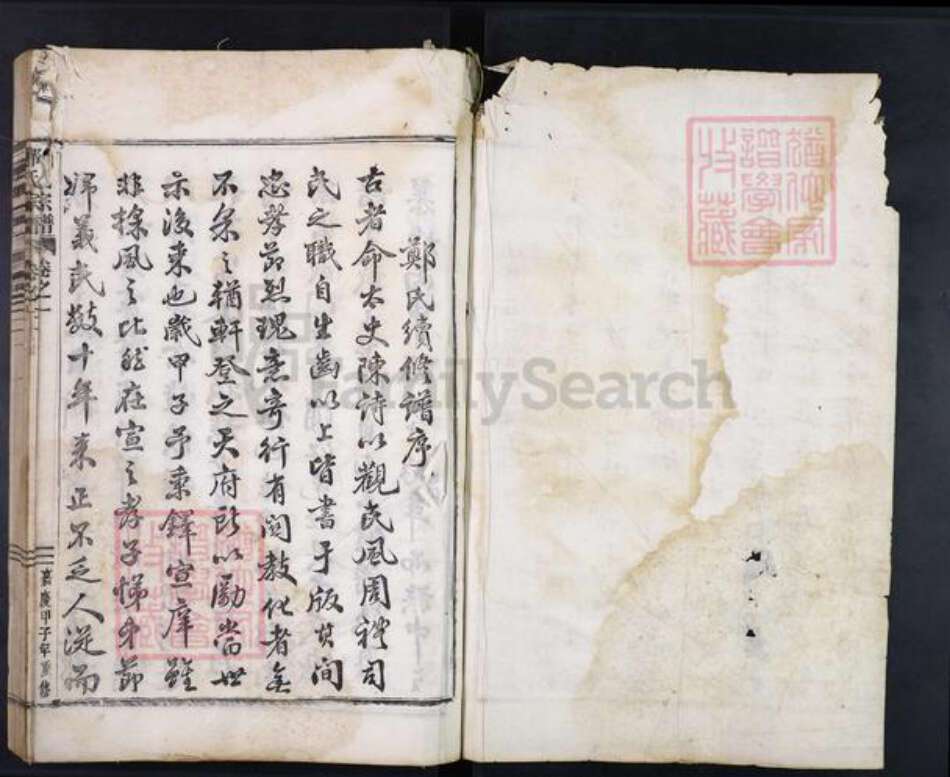 鄭氏續修譜序
古者命太史陳詩以觀民風周禮司
民之職自生齒以上皆書于版其間
忠孝節烈瑰意奇行有関教化者無
不采之輶軒登之天府所以勵當世
示後來也歲甲子予秉鐸宣庠雖
非採風之比然在宣之孝子悌弟節
婦義民数十年来正不乏人從而
鄭氏宗譜
卷之一
嘉慶甲子年重修
譜學會
收藏
FamilySearch